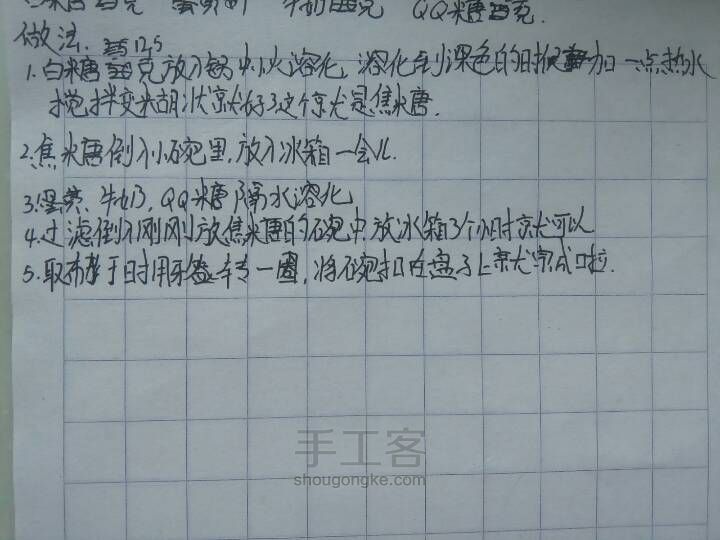 糖 克 蛋黄 个 牛奶 克 QQ糖 克.
做法.
1.白糖 克放入锅中小火溶化,溶化到深色的时候加一点热水
搅拌变米胡状就好了这个就是焦糖.
2.焦糖倒入小碗里,放入冰箱一会儿.
3.蛋黄、牛奶,QQ糖隔水溶化
4.过滤倒入刚刚放焦糖的碗中,放冰箱3个小时就可以
5.取布丁时用牙签转一圈,将碗扣在盘子上就完成啦.
手工客
shougongke.com